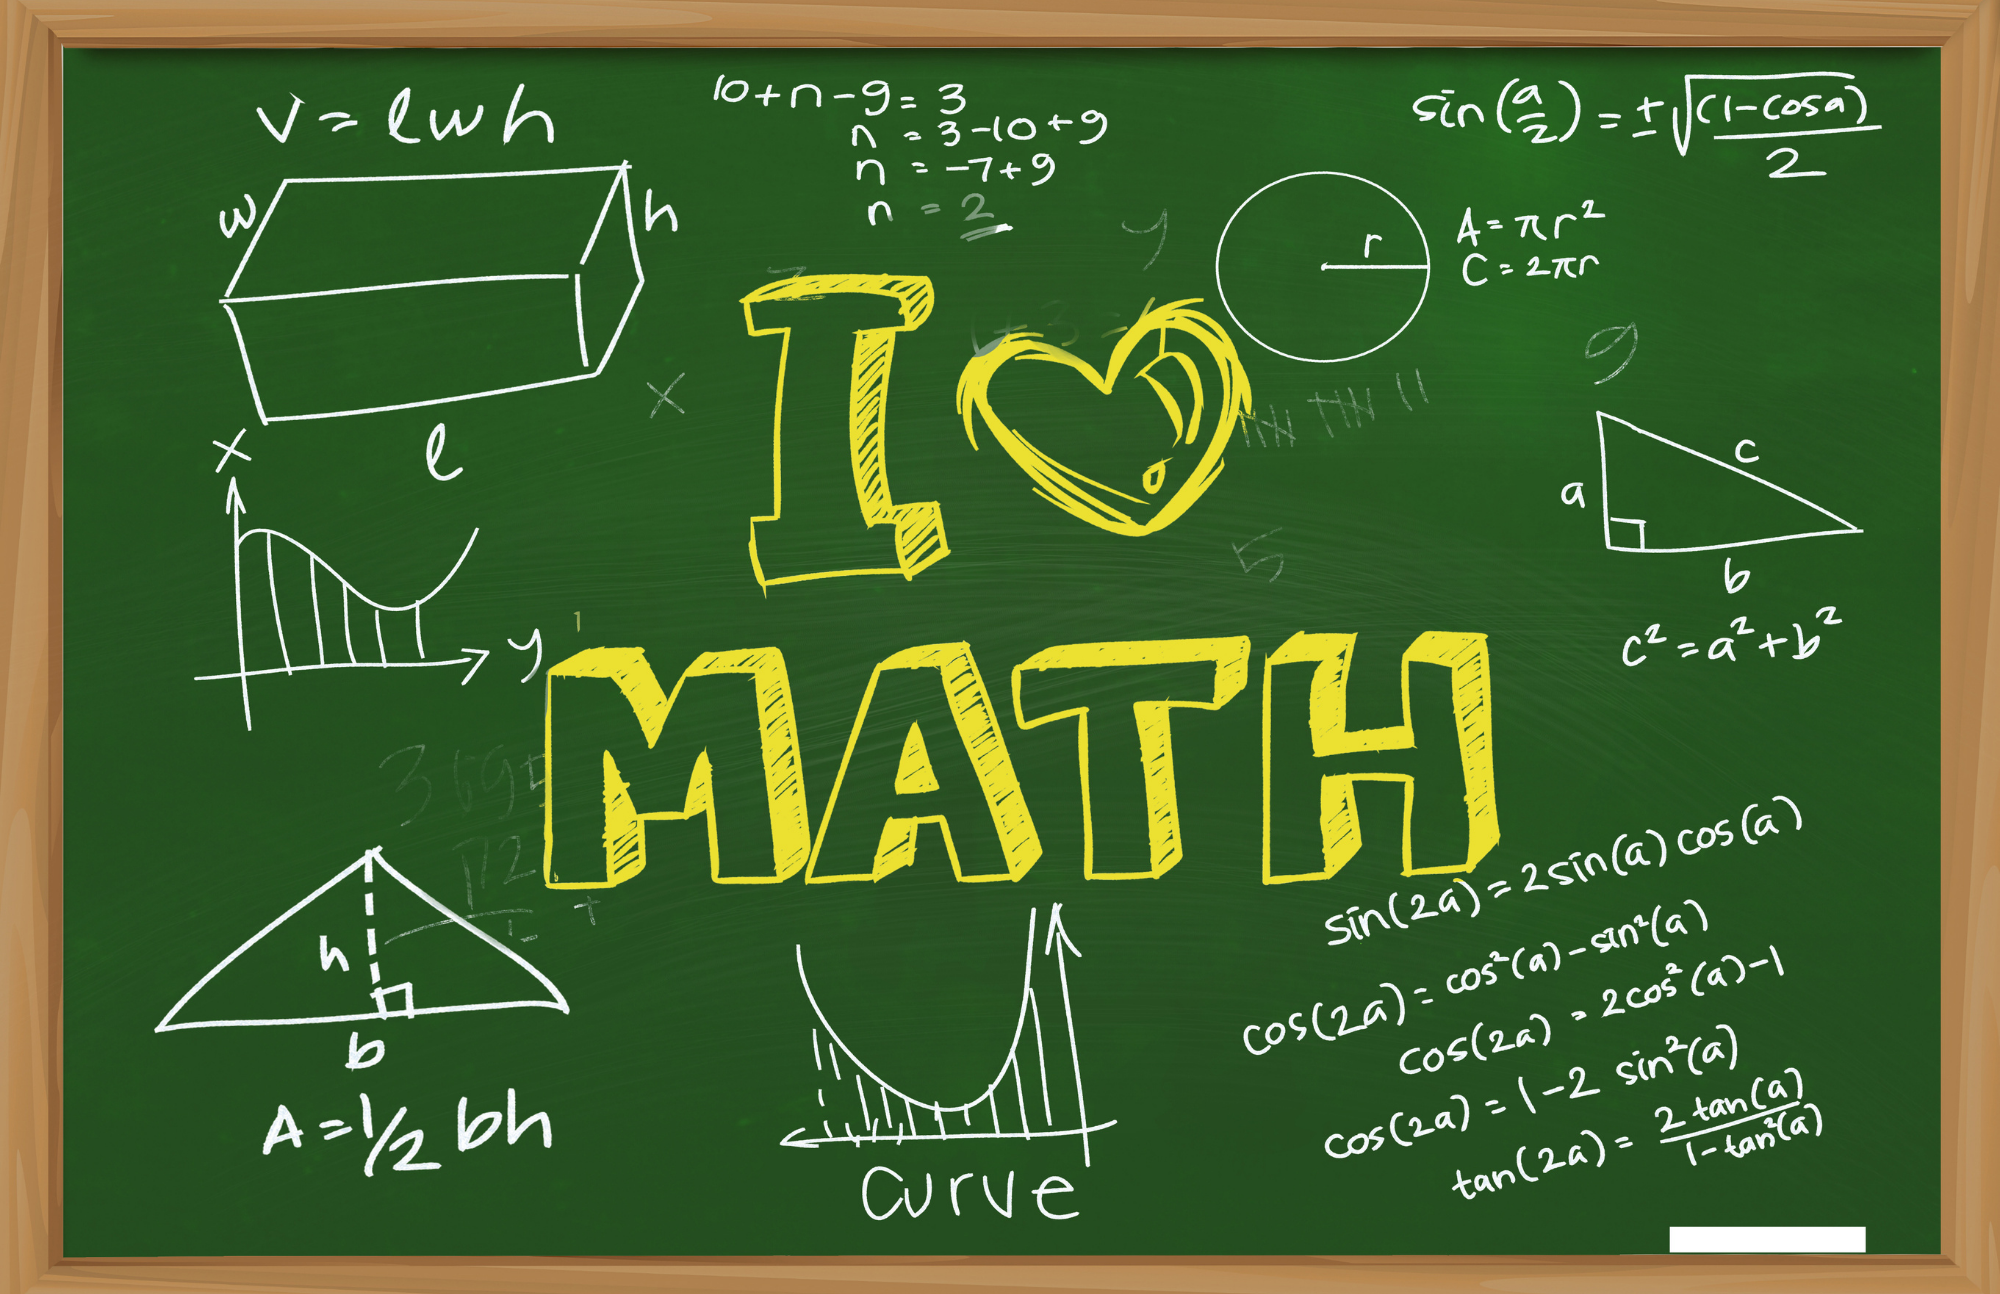 V = lwh
w
h
l
10+n-9=3
n = 3-10+9
n = -7+9
n = 2
sin(a/2) = ±√((1-cosa)/2)
r
A = πr²
C = 2πr
y
x
9
I ♥
MATH
5
x
y
a
c
b
c² = a² + b²
h
b
A = 1/2 bh
curve
sin(2a) = 2sin(a)cos(a)
cos(2a) = cos²(a) - sin²(a)
cos(2a) = 2cos²(a) - 1
cos(2a) = 1 - 2 sin²(a)
tan(2a) = 2 tan(a) / 1 - tan²(a)